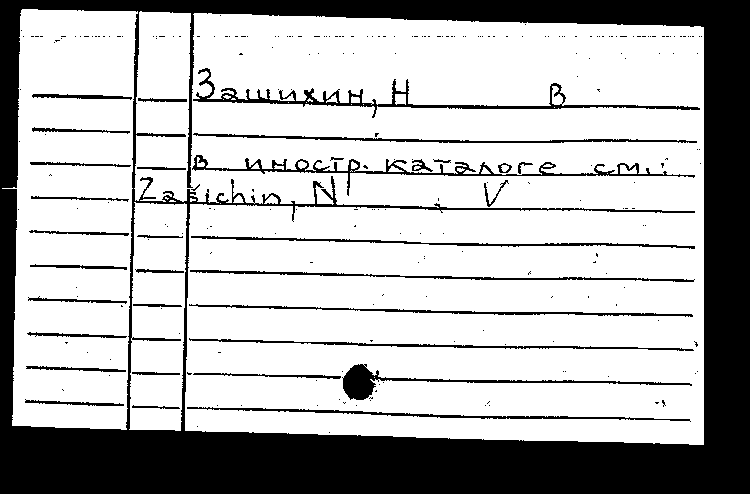 Зашихин, Н В
в иностр. каталоге см.:
Zašichin, N . V